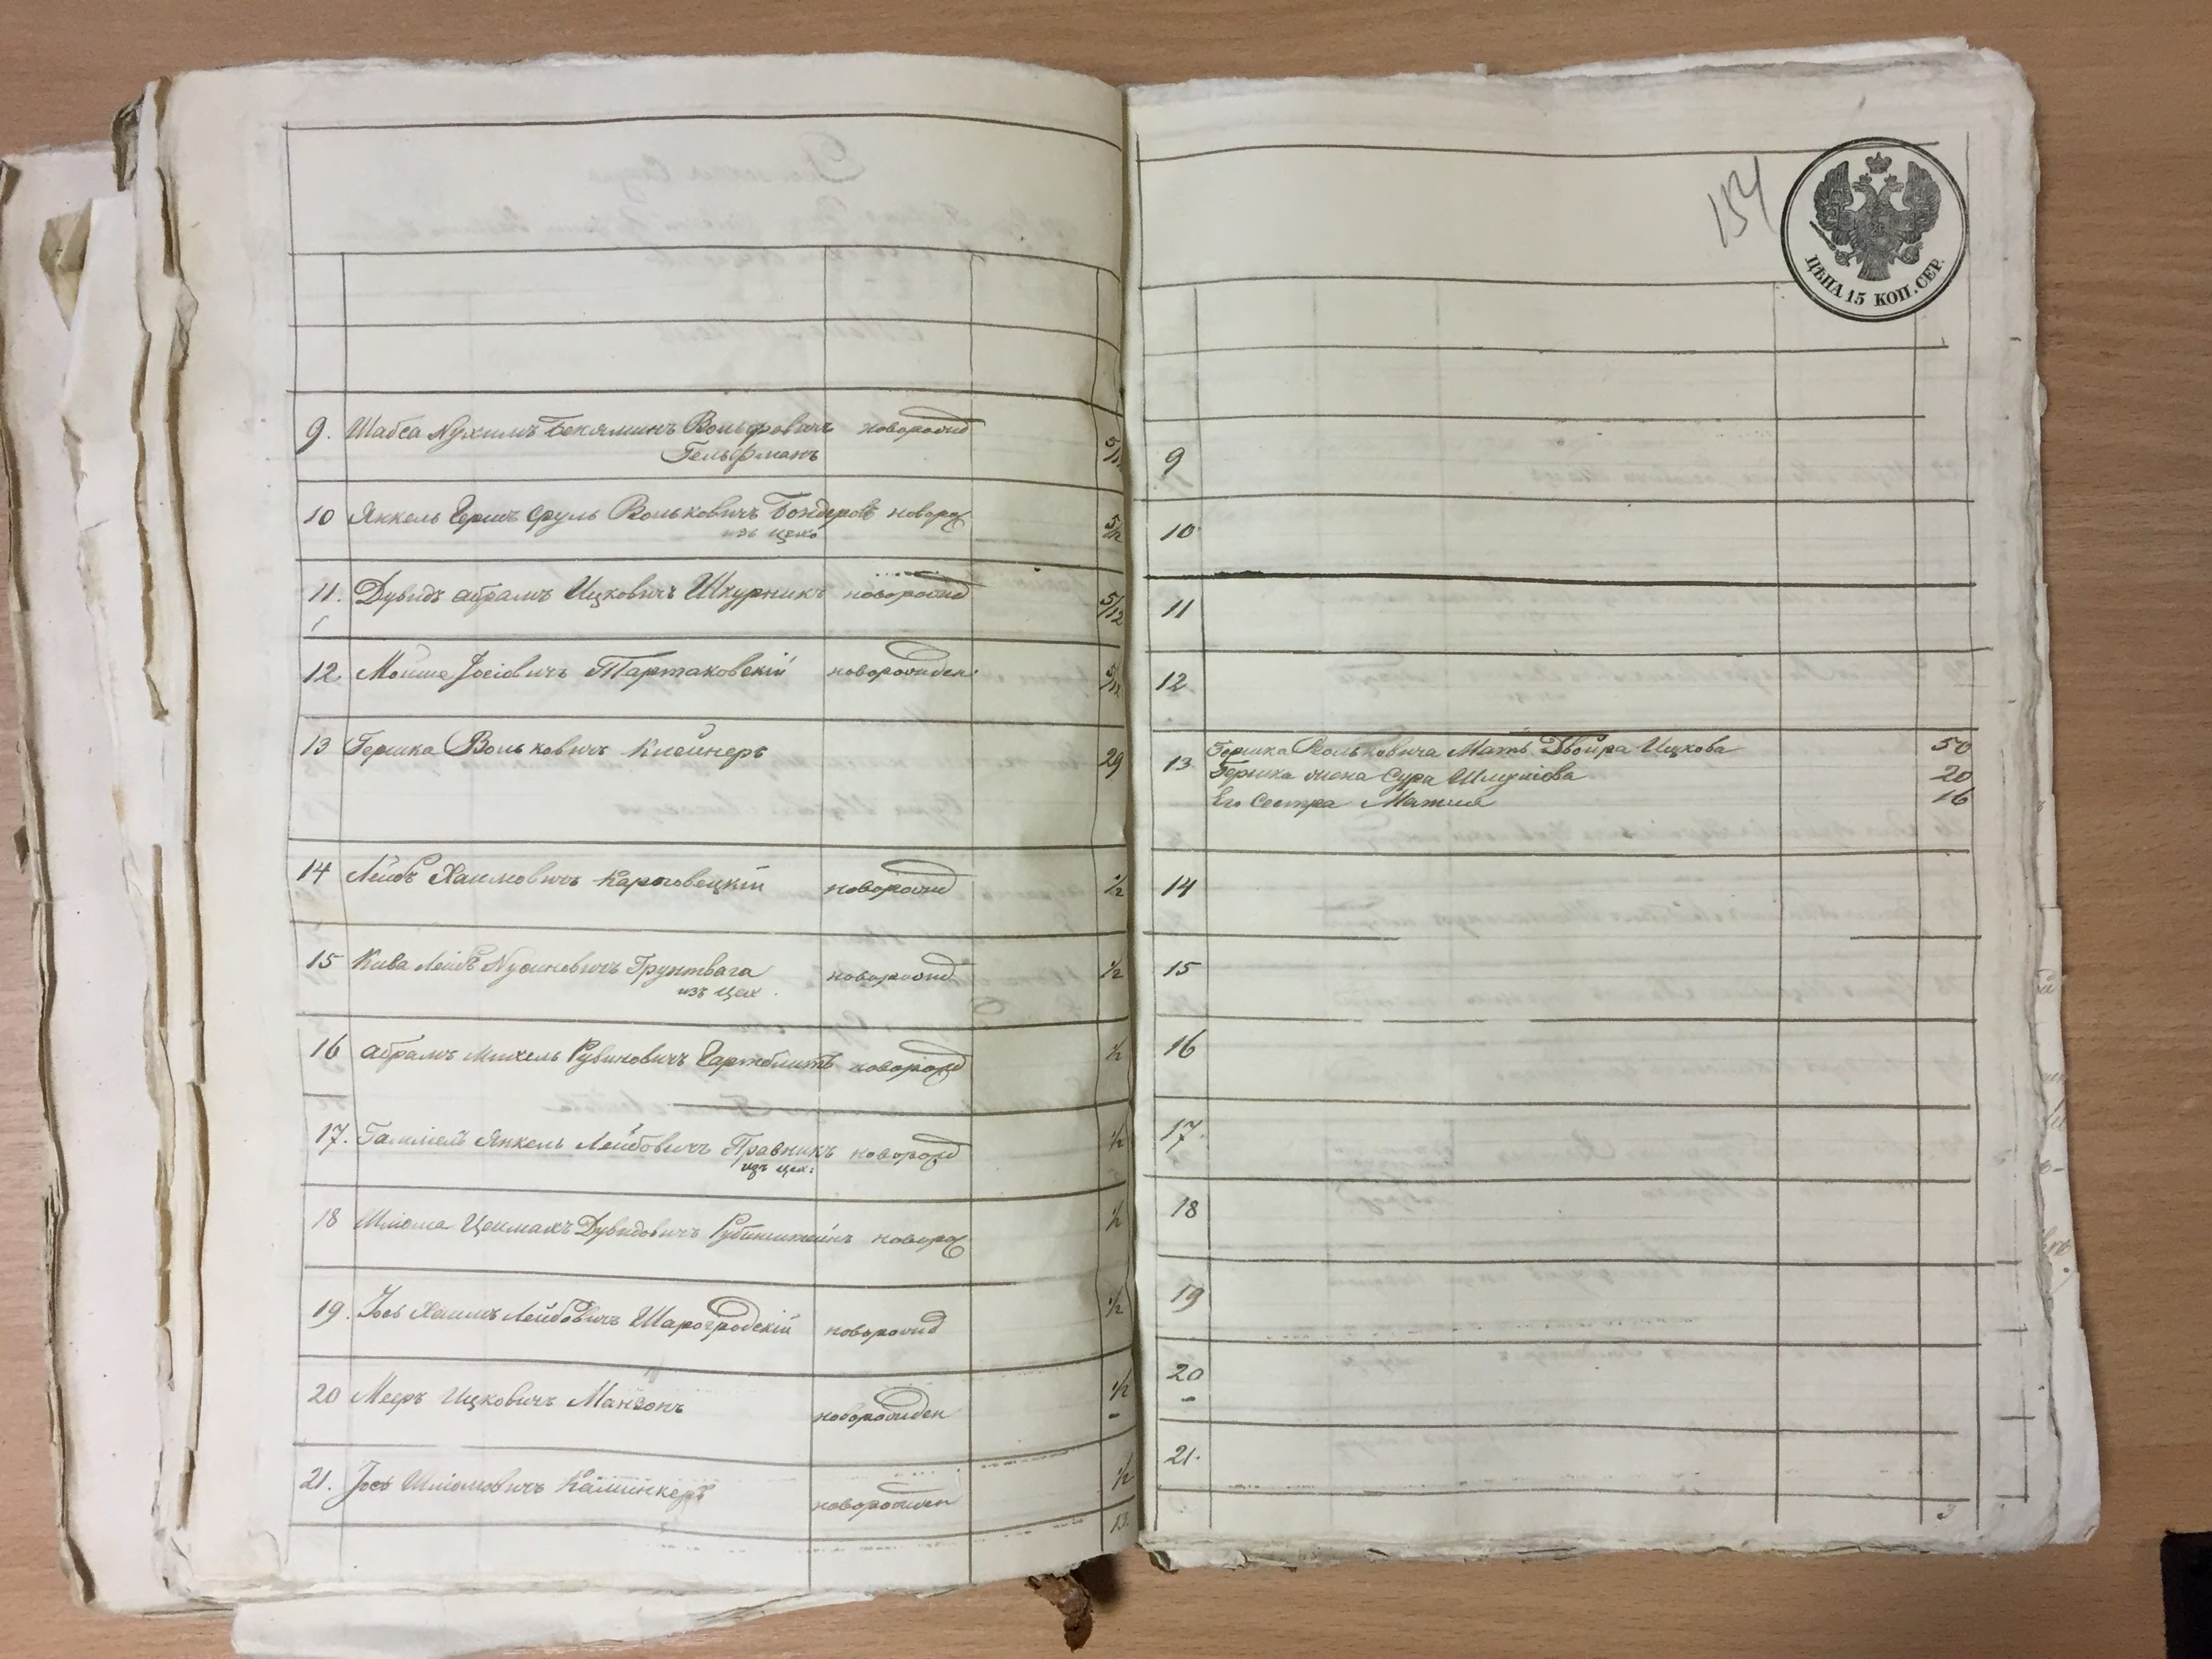 9. Шабса Нухимъ Беняминъ Вольфовичъ новорожд 5/12
Гельфманъ
10 Янкель Гершъ Сруль Вольковичъ Бондеровъ новорож 5/12
изъ цехо
11. Дувидъ Абрамъ Ицковичъ Шкурникъ новорожд 5/12
12. Мойше Іосіовичъ Тартаковскій новорожден: 5/12
13 Гершка Вольковичъ Клейнеръ 29
14 Лейбъ Хаимовичъ новорожд 1/2
15 Кива Лейбъ Нусиновичъ Грунтвага новорожд 1/2
изъ цех.
16 Абрамъ Михель Рувиновичъ новорожд 1/2
17. Янкель Лейбовичъ Правникъ новорожд 1/2
изъ цех:
18 Шліома Цеимахъ Дувидовичъ Рубинштейнъ новорож 1/2
19. Іось Хаимъ Лейбовичъ Шарогродскій новорожд 1/2
20 Мееръ Ицковичъ Манзонъ новорожден 1/2
21. Іось Шліомовичъ Каминкеръ новорожден 1/2
13.
154
ЦѢНА 15 КОП. СЕР.
9
10
11
12
13 Гершка Вольковича Мать Двойра Ицкова 50
Гершка жена Сура Шмулiова 20
Его сестра Матля 16
14
15
16
17.
18
19
20
21.
3